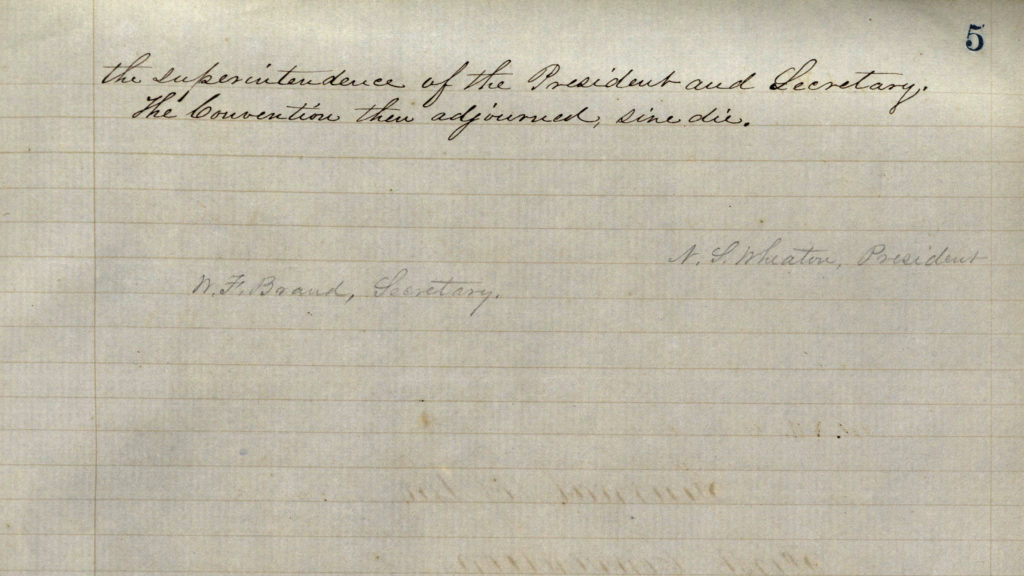 5
the superintendence of the President and Secretary.
The Convention then adjourned, sine die.
N. S. Wheaton, President
W. F. Brand, Secretary.